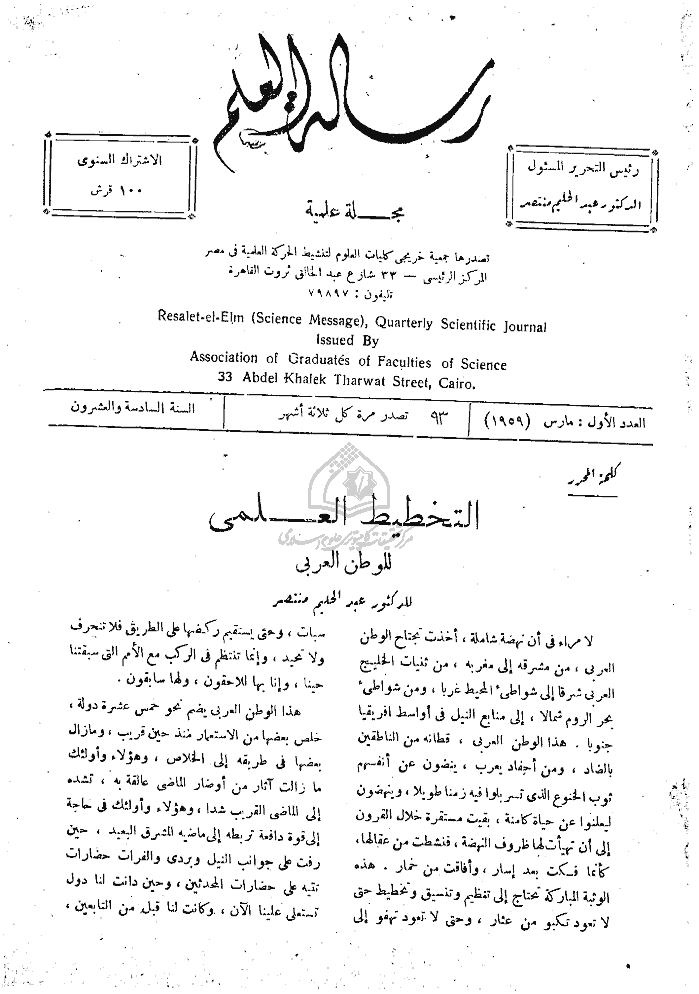 رسالة العلم
رئيس التحرير المسئول
الدكتور عبد الحليم منتصر
الاشتراك السنوى
١٠٠ قرش
مجلة علمية
تصدرها جمعية خريجى كليات العلوم لتنشيط الحركة العلمية فى مصر
المركز الرئيسى — ٣٣ شارع عبد الخالق ثروت القاهرة
تليفون : ٧٩٨٩٧
Resalet-el-Elm (Science Message), Quarterly Scientific Journal
Issued By
Association of Graduates of Faculties of Science
33 Abdel Khalek Tharwat Street, Cairo.
العدد الأول : مارس (١٩٥٩) | ٩٣ تصدر مرة كل ثلاثة أشهر | السنة السادسة والعشرون
كلمة المحرر
التخطيط العلمى
للوطن العربى
للدكتور عبد الحليم منتصر
لا مراء فى أن نهضة شاملة ، أخذت تجتاح الوطن
العربى ، من مشرقه إلى مغربه ، من ثنيات الخليج
العربى شرقا إلى شواطىء المحيط غربا ، ومن شواطىء
بحر الروم شمالا ، إلى منابع النيل فى أواسط افريقيا
جنوبا . هذا الوطن العربى ، قطانه من الناطقين
بالضاد ، ومن أحفاد يعرب ، ينضون عن أنفسهم
ثوب الخنوع الذى تسربلوا فيه زمنا طويلا ، وينهضون
ليعلنوا عن حياة كامنة ، بقيت مستقرة خلال القرون
إلى أن تهيأت لها ظروف النهضة ، فنشطت من عقالها ،
كأنما فكت بعد إسار ، وأفاقت من خمار . هذه
الوثبة المباركة تحتاج إلى تنظيم وتنسيق وتخطيط حتى
لا تعود تكبو من عثار ، وحتى لا تعود تهفو إلى
سبات ، وحتى يستقيم ركضها على الطريق فلا تنحرف
ولا تحيد ، وإنما تنتظم فى الركب مع الأمم التى سبقتنا
حينا ، وإنا بها للاحقون ، ولها سابقون .
هذا الوطن العربى يضم نحو خمس عشرة دولة ،
خلص بعضها من الاستعمار منذ حين قريب ، ومازال
بعضها فى طريقه إلى الخلاص ، وهؤلاء وأولئك
ما زالت آثار من أوضار الماضى عالقة به ، تشده
إلى الماضى القريب شدا ، وهؤلاء وأولئك فى حاجة
إلى قوة دافعة تربطه إلى ماضيه المشرق البعيد ، حين
رفت على جوانب النيل وبردى والفرات حضارات
تتيه على حضارات المحدثين ، وحين دانت لنا دول
تستعلى علينا الآن ، وكانت لنا قبل من التابعين ،